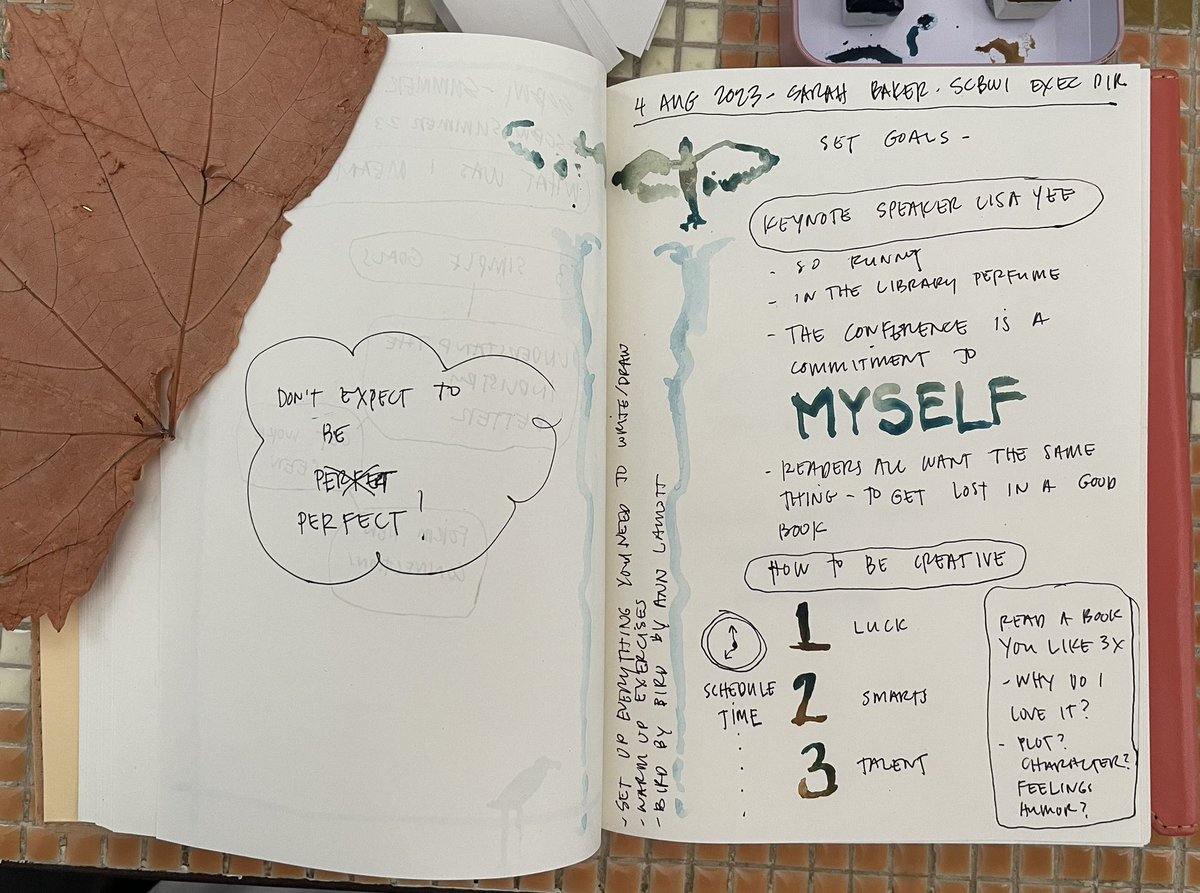 DON'T EXPECT TO
BE
PERFECT!
4 AUG 2023 - SARAH BAKER. SCBWI EXEC DIR
SET GOALS -
KEYNOTE SPEAKER LISA YEE
- SO FUNNY
- IN THE LIBRARY PERFUME
- THE CONFERENCE IS A
COMMITMENT TO
MYSELF
- READERS ALL WANT THE SAME
THING - TO GET LOST IN A GOOD
BOOK
HOW TO BE CREATIVE
1 LUCK
2 SMARTS
3 TALENT
SCHEDULE
TIME
READ A BOOK
YOU LIKE 3X
- WHY DO I
LOVE IT?
- PLOT?
CHARACTER?
FEELINGS
HUMOR?
- SET UP EVERYTHING YOU NEED TO WRITE/DRAW
- WARM UP EXERCISES
- BIRD BY BIRD BY ANN LAMOTT